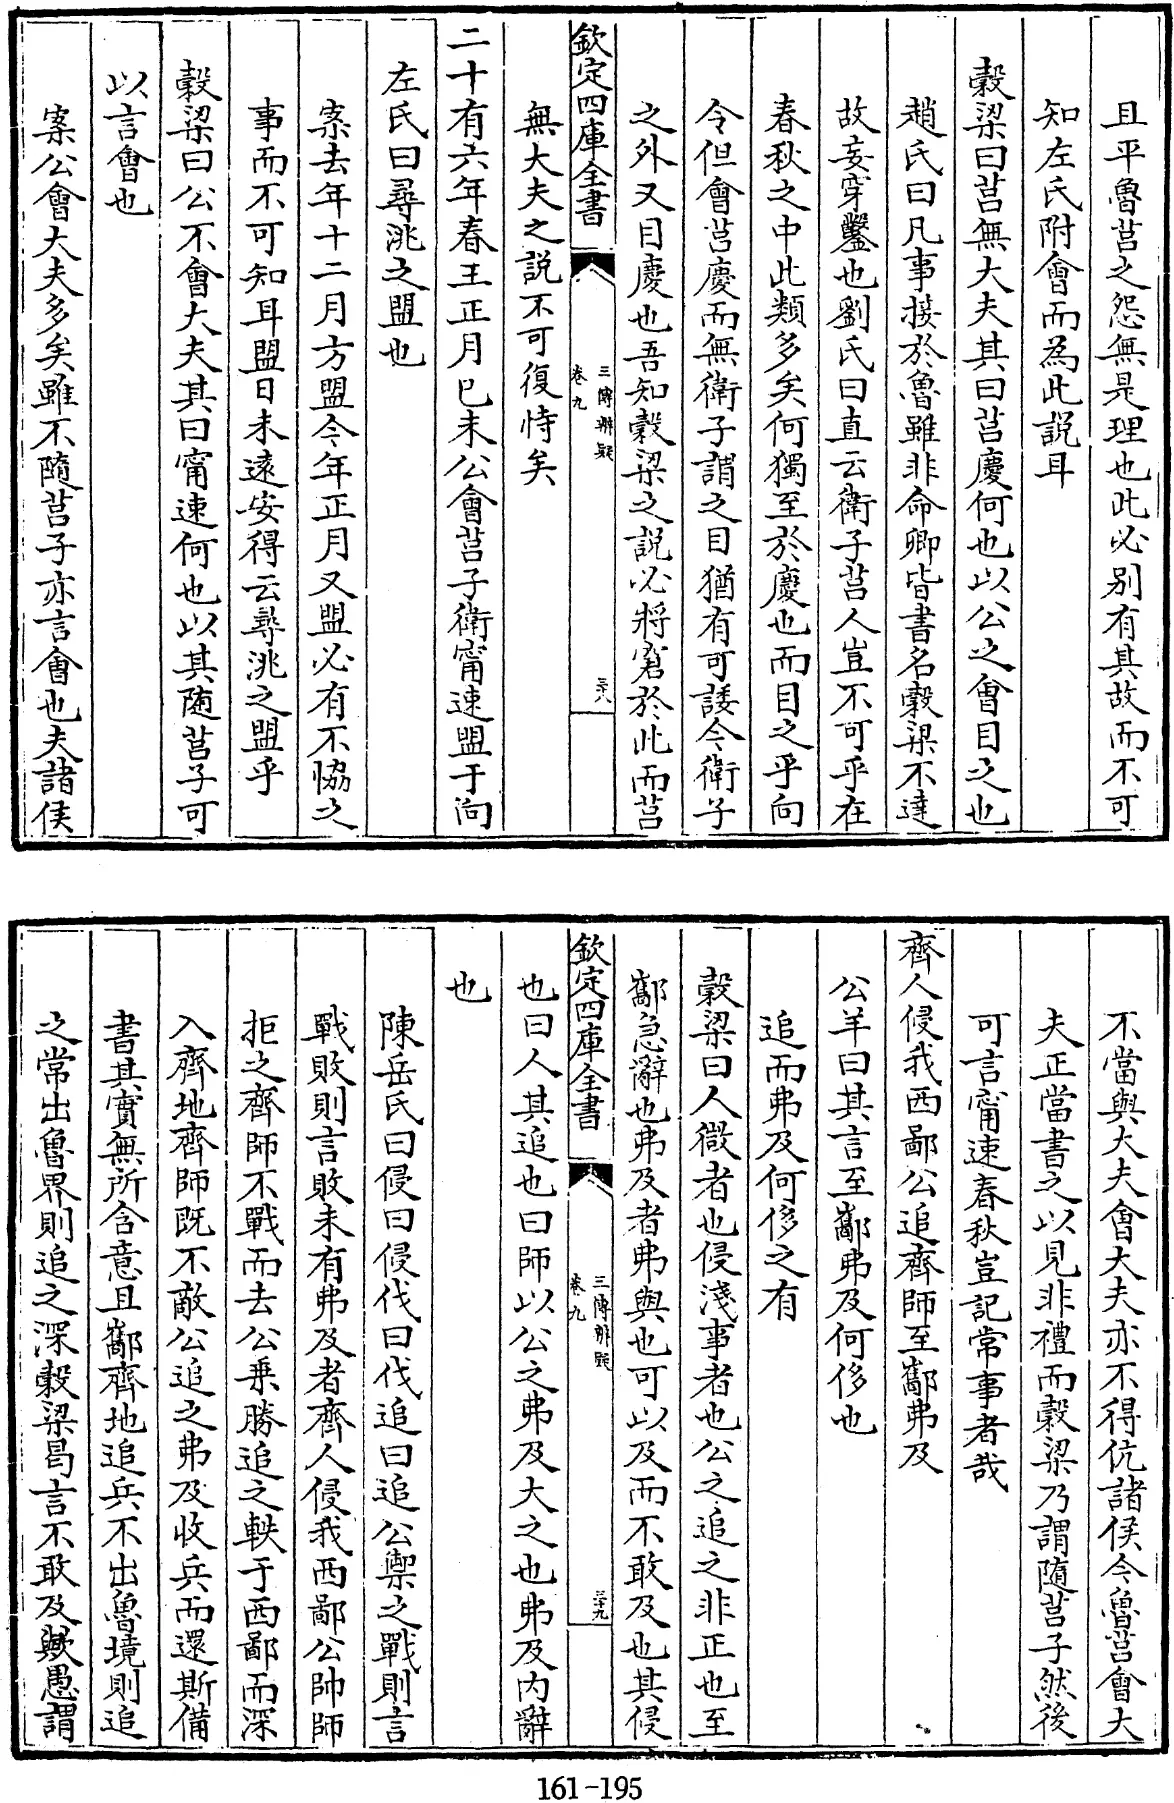 且平魯莒之怨無是理也此必别有其故而不可
知左氏附會而為此說耳
穀梁曰莒無大夫其曰莒慶何也以公之會目之也
趙氏曰凡事接於魯雖非命卿皆書名穀梁不達
故妄穿鑿也劉氏曰直云衛子莒人豈不可乎在
春秋之中此類多矣何獨至於慶也而目之乎向
令但會莒慶而無衛子謂之目猶有可諉今衛子
之外又目慶也吾知穀梁之說必將窘於此而莒
欽定四庫全書
三傳辨疑
卷九
三十八
無大夫之說不可復恃矣
二十有六年春王正月己未公會莒子衛甯速盟于向
左氏曰尋洮之盟也
案去年十二月方盟今年正月又盟必有不協之
事而不可知耳盟日未遠安得云尋洮之盟乎
穀梁曰公不會大夫其曰甯速何也以其随莒子可
以言會也
案公會大夫多矣雖不隨莒子亦言會也夫諸侯
不當與大夫會大夫亦不得伉諸侯今魯莒會大
夫正當書之以見非禮而穀梁乃謂隨莒子然後
可言甯速春秋豈記常事者哉
齊人侵我西鄙公追齊師至酅弗及
公羊曰其言至酅弗及何侈也
追而弗及何侈之有
穀梁曰人微者也侵淺事者也公之追之非正也至
酅急辭也弗及者弗與也可以及而不敢及也其侵
欽定四庫全書
三傳辨疑
卷九
三十九
也曰人其追也曰師以公之弗及大之也弗及内辭
也
陳岳氏曰侵曰侵伐曰伐追曰追公禦之戰則言
戰敗則言敗未有弗及者齊人侵我西鄙公帥師
拒之齊師不戰而去公乗勝追之軼于西鄙而深
入齊地齊師既不敵公追之弗及收兵而還斯備
書其實無所含意且酅齊地追兵不出魯境則追
之常出魯界則追之深穀梁曷言不敢及歟愚謂
161-195